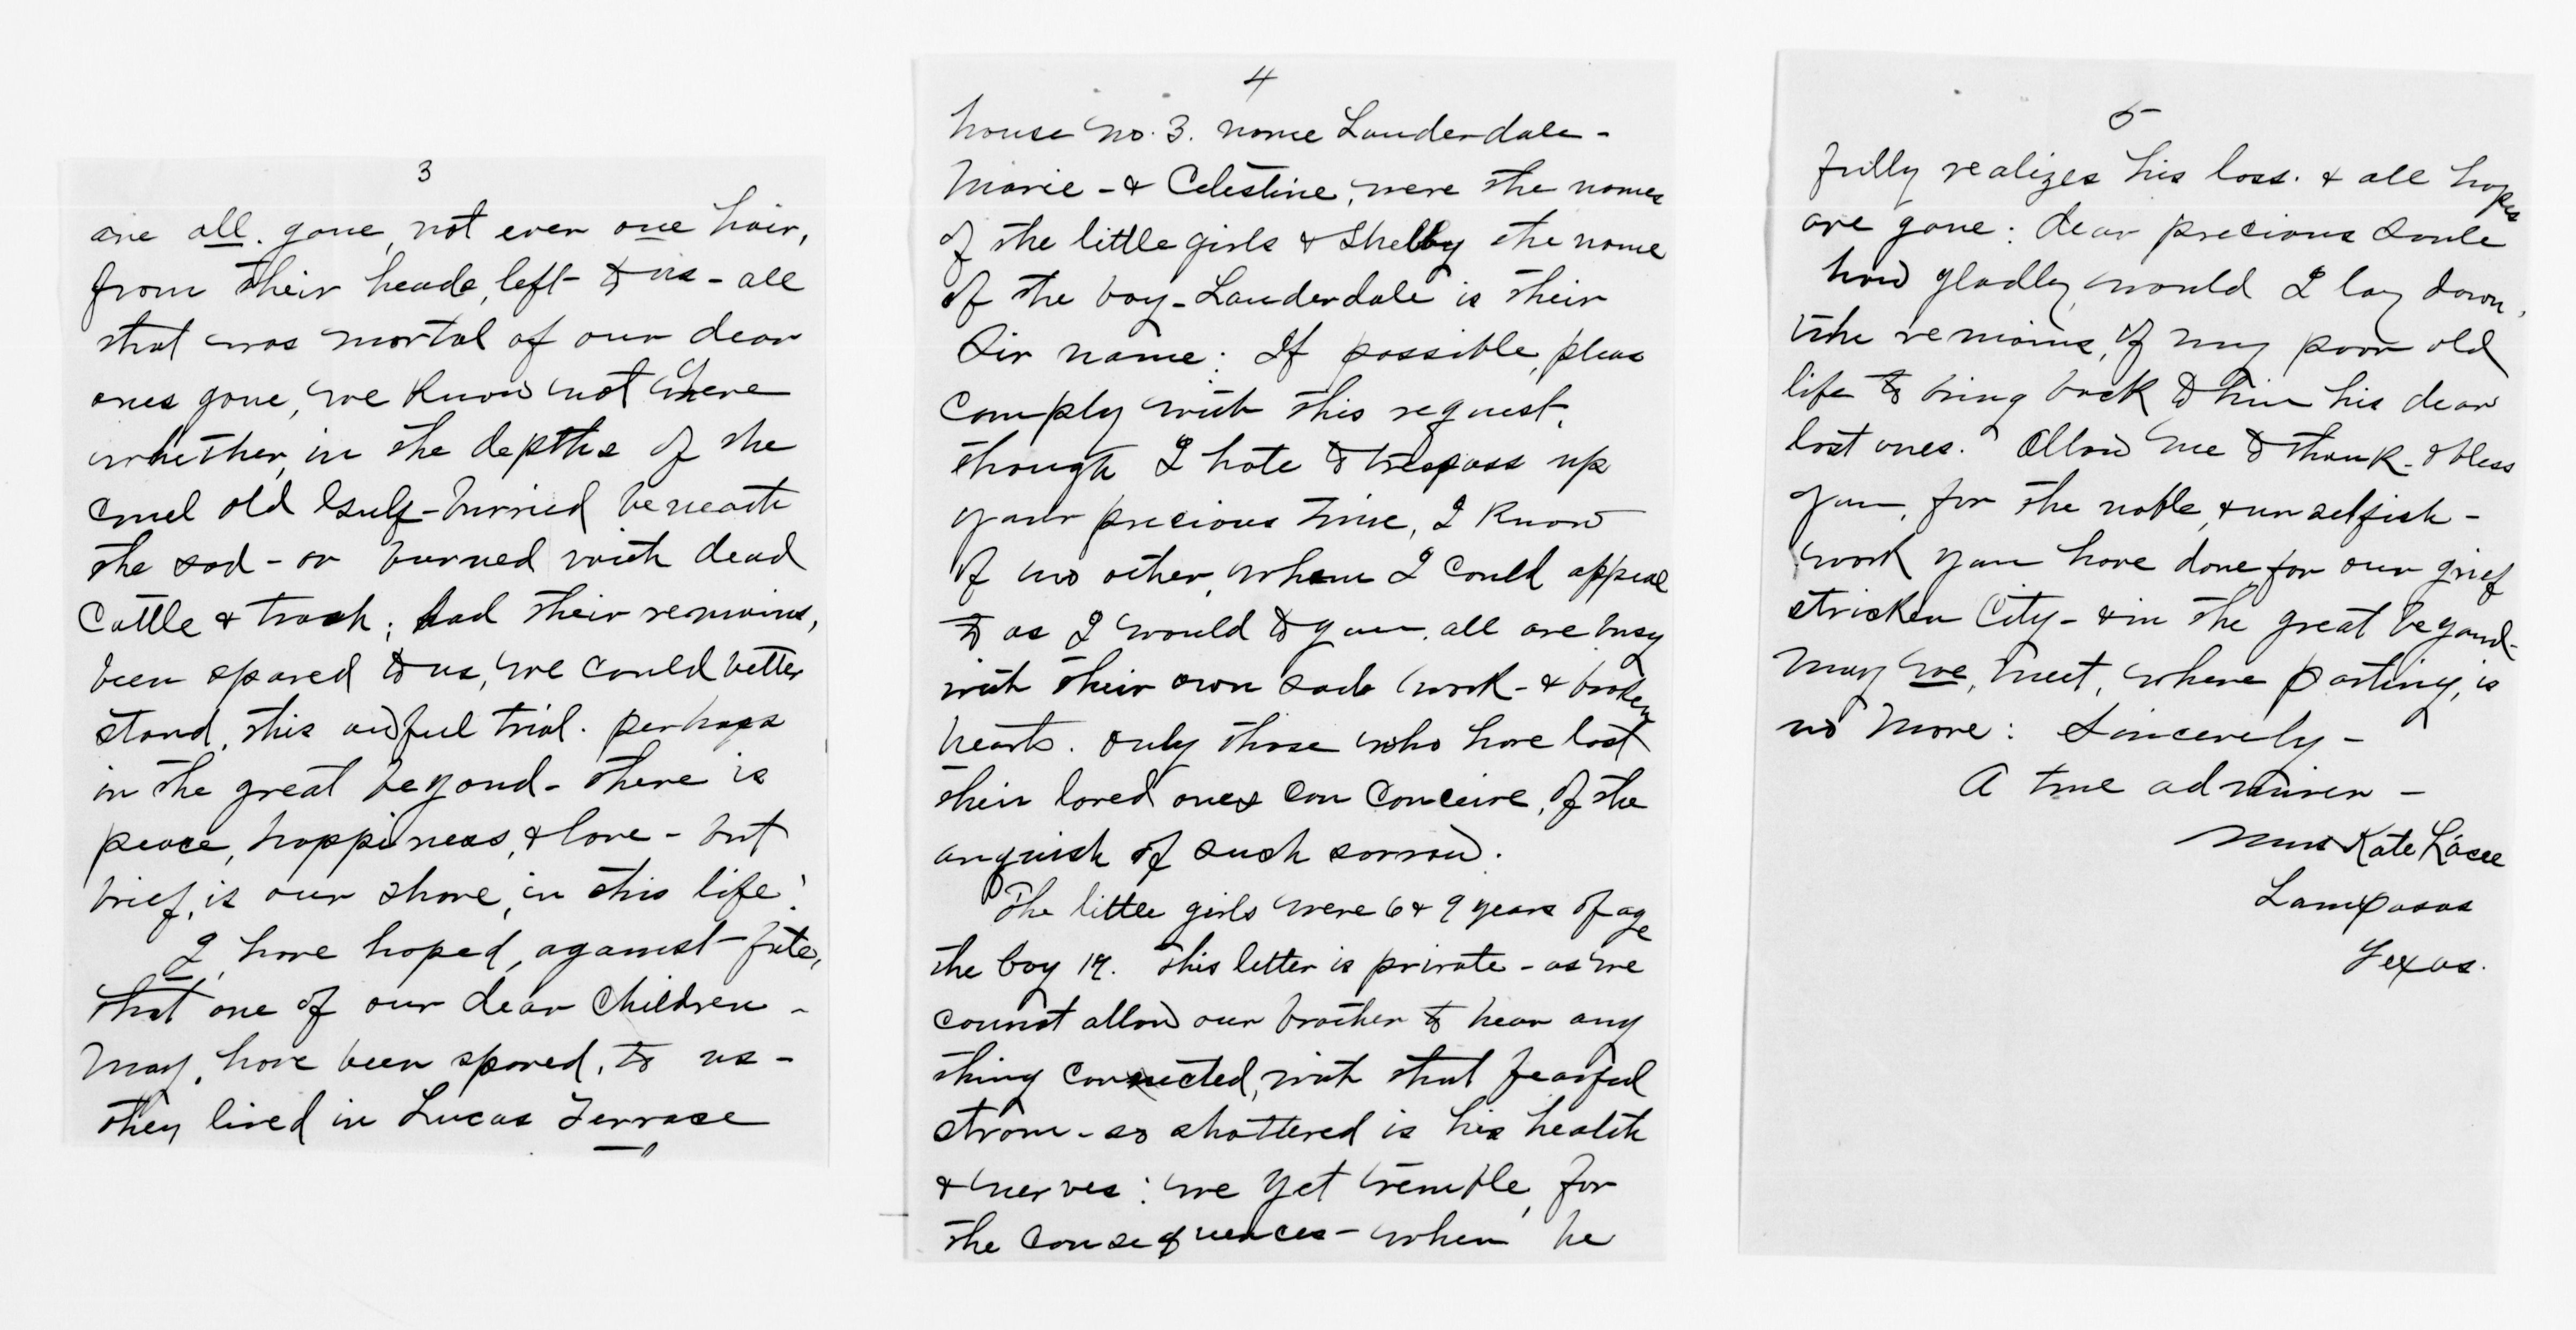 3
are all. gone, not even one hair,
from their heads, left to us - all
that was mortal of our dear
ones gone, we know not where
whether, in the depths of the
cruel old Gulf - burried beneath
the sod - or burned with dead
Cattle & trash; had their remains,
been spared to us, we could better
stand, this awful trial. perhaps
in the great beyond - there is
peace, happiness, & love - but
brief, is our share, in this life!
I, have hoped, against fate,
that one of our dear Children -
May, have been spared, to us -
they lived in Lucas Terrace
4
house no. 3. name Lauderdale -
Marie - & Celestine, were the names
of the little girls & Shelby the name
of the boy - Lauderdale is their
Sir name: If possible, pleas
comply with this request,
though I hate to trespass up
your precious time, I know
of no other, whom I could appeal
to as I would to you. all are busy
with their own sad work - & broken
hearts. only those who have lost
their loved ones can conceive, of the
anguish of such sorrow.
The little girls were 6 & 9 years of age
the boy 19. This letter is private - as we
cannot allow our brother to hear any
thing connected, with that fearful
strom - so shattered is his health
& nerves: we yet tremble, for
the consequences - when he
5
fully realizes his loss. & all hopes
are gone: dear precious souls
how gladly, would I lay down,
the remains, of my poor old
life to bring back to him his dear
lost ones. Allow me to thank - & bless
you, for the noble, & unselfish -
work you have done, for our grief
stricken City - & in the great beyond -
may we, meet, where parting, is
no more: Sincerely -
A true admirer -
Mrs Kate
Lampasas
Texas.